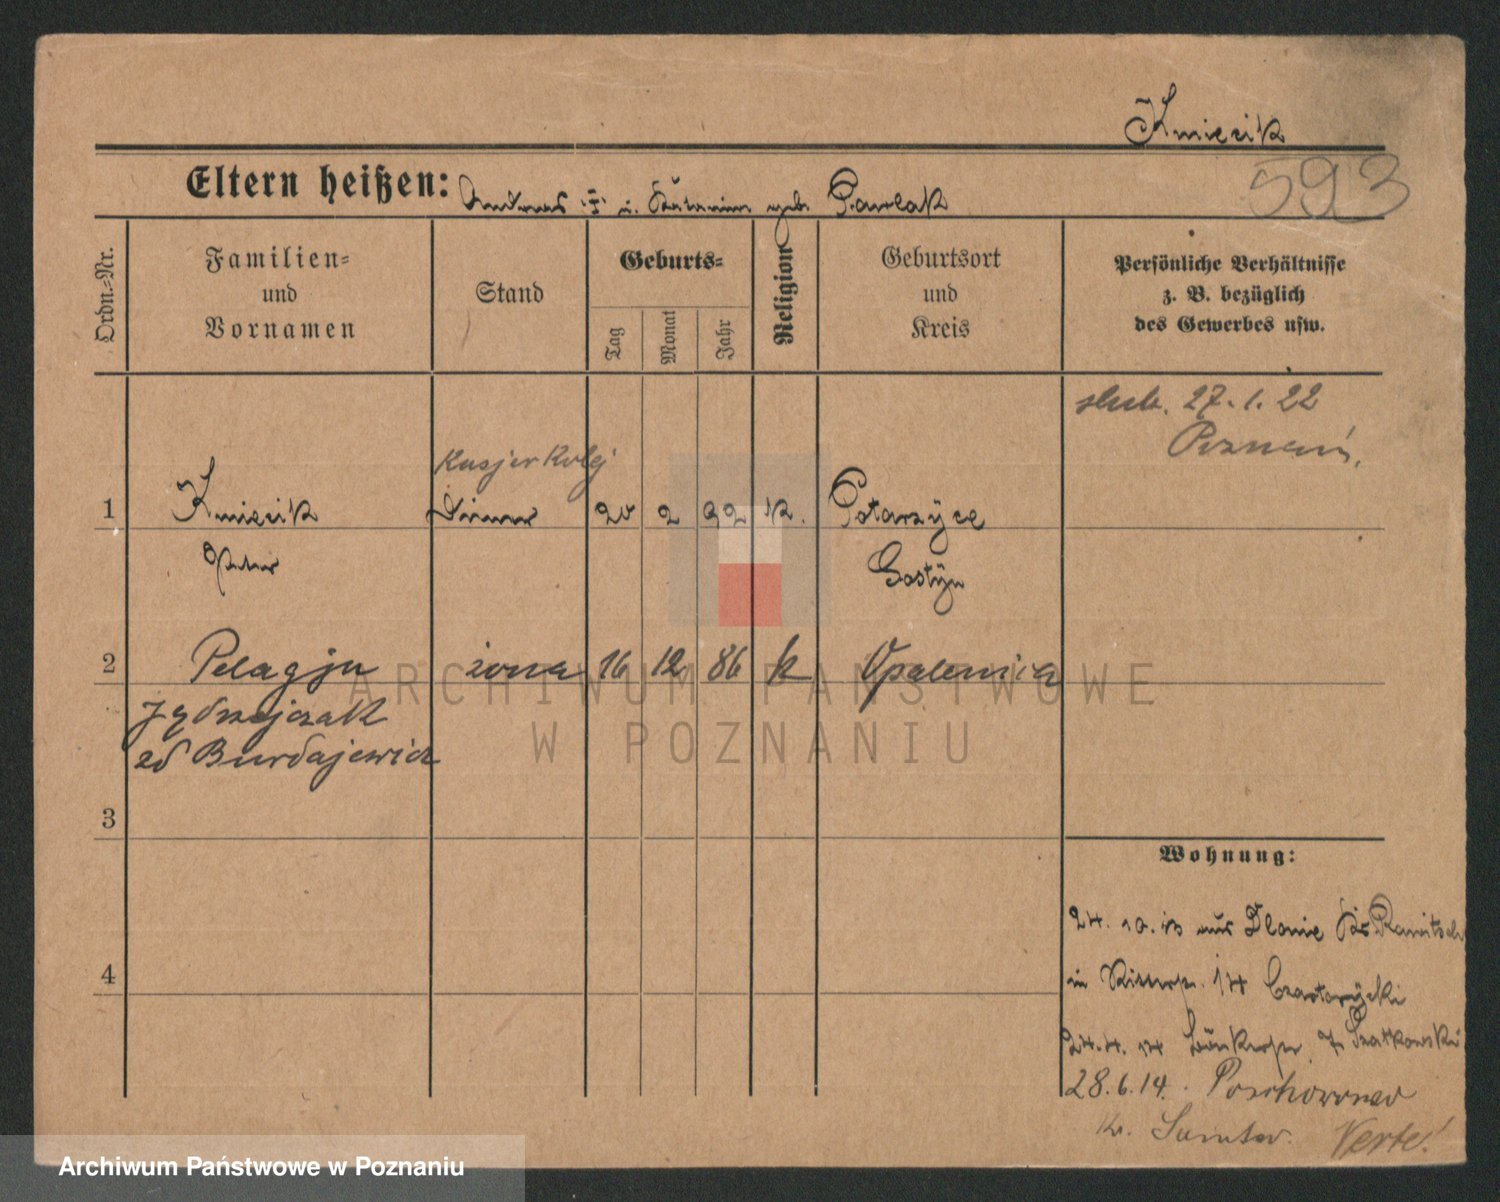 Kmiecik
593
Eltern heißen: Andreas † u. Katarina geb. Pawlak
Ordn.-Nr.
Familien-
und
Vornamen
Stand
Geburts-
Tag
Monat
Jahr
Religion
Geburtsort
und
Kreis
Persönliche Verhältnisse
z. B. bezüglich
des Gewerbes usw.
ślub. 27.1.22
Poznań.
Kasjer Kolej
1 Kmiecik Diener 20 2 92 K. Potarzyce
Peter Gostyn
2 Pelagja żona 16 12 86 k Opalenica
Jędrzejczak
zd Burdajewicz
3
4
Wohnung:
24. 10. 13 aus Dlonie Kr. Rawitsch
in Ritterstr. 14 Czartorycki
24. 4. 14 7 Szatkowski
28.6.14.
Kr. Samter. Verte!
ARCHIWUM PAŃSTWOWE
W POZNANIU
Archiwum Państwowe w Poznaniu